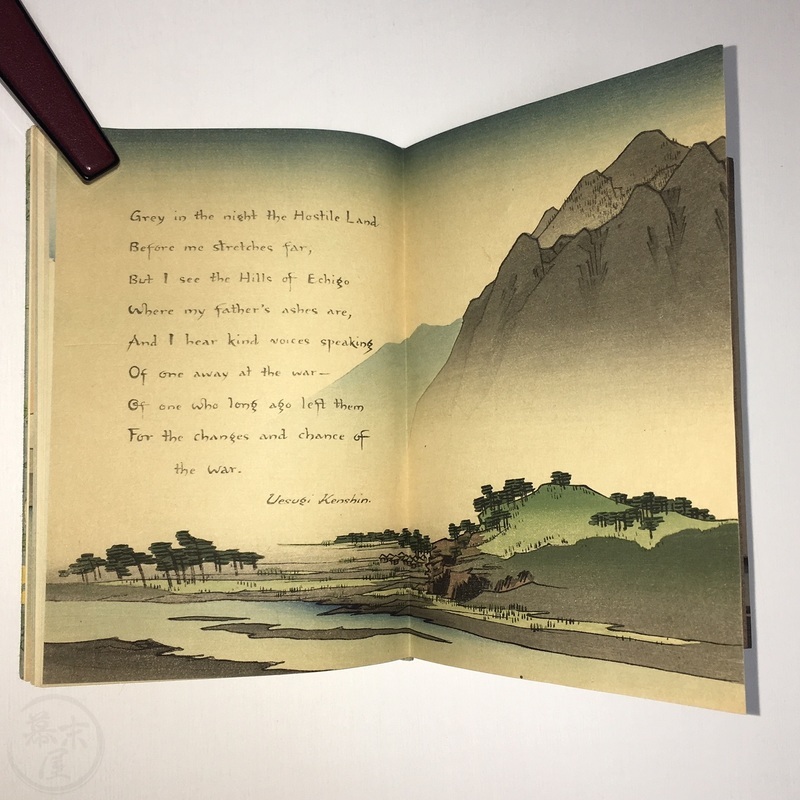 Grey in the night the Hostile Land
Before me stretches far,
But I see the Hills of Echigo
Where my father's ashes are,
And I hear kind voices speaking
Of one away at the war—
Of one who long ago left them
For the changes and chance of
the war.
Uesugi Kenshin.
幕末屋